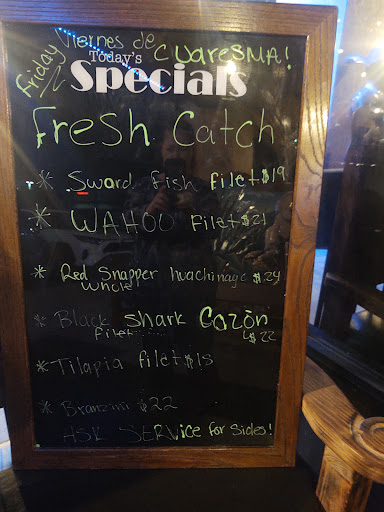 Viernes de CUARESMA!
Friday
Today's
Specials
Fresh Catch
* Sword fish filet $19
* WAHOO filet $21
* Red Snapper huachinago $24
whole
* Black shark Cazón
filet $22
* Tilapia filet $15
* Branzini $22
ASK SERVICE for Sides!